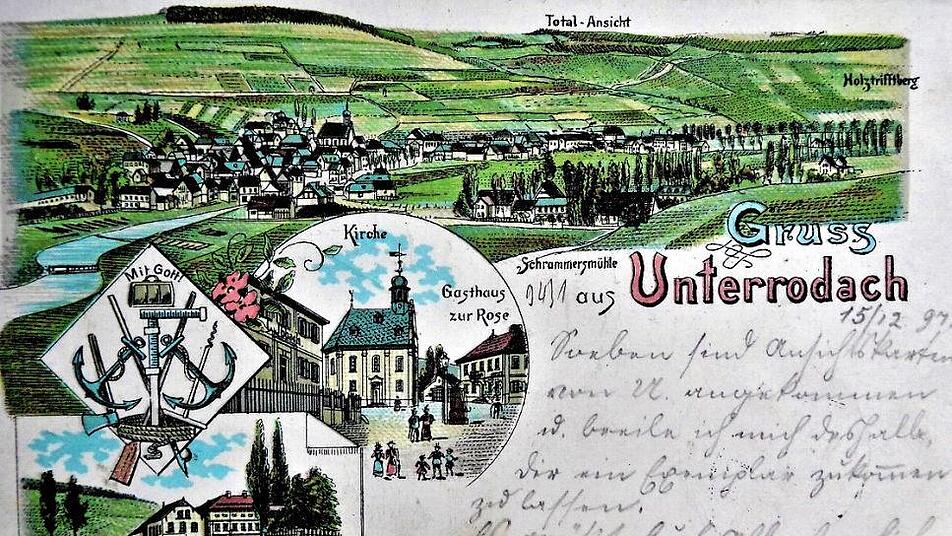 Total-Ansicht
Holztrifftberg
Gruss
aus Unterrodach
Schrammersmühle
Kirche
Gasthaus
zur Rose
Mit Gott!
9431
15/12 9
Soeben sind Ansichtskarten
von U. angekommen
u. beeile ich mich deshalb,
Dir ein Exemplar zukommen
zu lassen.